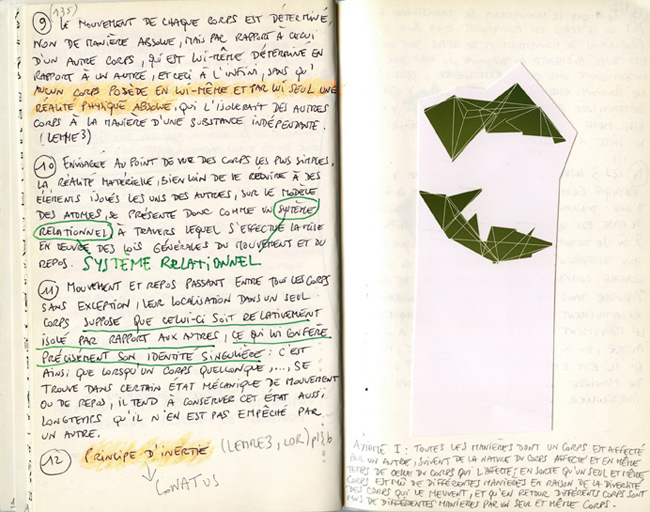 (135)
9) LE MOUVEMENT DE CHAQUE CORPS EST DÉTERMINÉ,
NON DE MANIÈRE ABSOLUE, MAIS PAR RAPPORT À CELUI
D'UN AUTRE CORPS, QUI EST LUI-MÊME DÉTERMINÉ EN
RAPPORT À UN AUTRE, ET CECI À L'INFINI, SANS QU'
AUCUN CORPS POSSÈDE EN LUI-MÊME ET PAR LUI SEUL UNE
RÉALITÉ PHYSIQUE ABSOLUE, QUI L'ISOLERAIT DES AUTRES
CORPS À LA MANIÈRE D'UNE SUBSTANCE INDÉPENDANTE.
(LEMME 3)
10) ENVISAGÉE AU POINT DE VUE DES CORPS LES PLUS SIMPLES,
LA RÉALITÉ MATÉRIELLE, BIEN LOIN DE SE RÉDUIRE À DES
ÉLÉMENTS ISOLÉS LES UNS DES AUTRES, SUR LE MODÈLE
DES ATOMES, SE PRÉSENTE DONC COMME UN SYSTÈME
RELATIONNEL À TRAVERS LEQUEL S'EFFECTUE LA MISE
EN OEUVRE DES LOIS GÉNÉRALES DU MOUVEMENT ET DU
REPOS. SYSTÈME RELATIONNEL
11) MOUVEMENT ET REPOS PASSANT ENTRE TOUS LES CORPS
SANS EXCEPTION, LEUR LOCALISATION DANS UN SEUL
CORPS SUPPOSE QUE CELUI-CI SOIT RELATIVEMENT
ISOLÉ PAR RAPPORT AUX AUTRES, CE QUI LUI CONFÈRE
PRÉCISÉMENT SON IDENTITÉ SINGULIÈRE: C'EST
AINSI QUE LORSQU'UN CORPS QUELCONQUE, ..., SE
TROUVE DANS CERTAIN ÉTAT MÉCANIQUE DE MOUVEMENT
OU DE REPOS, IL TEND À CONSERVER CET ÉTAT AUSSI
LONGTEMPS QU'IL N'EN EST PAS EMPÊCHÉ PAR
UN AUTRE.
12) PRINCIPE D'INERTIE (LEMME 3, COR)
CONATUS
AXIOME I: TOUTES LES MANIÈRES DONT UN CORPS EST AFFECTÉ
PAR UN AUTRE, SUIVENT DE LA NATURE DU CORPS AFFECTÉ ET EN MÊME
TEMPS DE CELLE DU CORPS QUI L'AFFECTE; EN SORTE QU'UN SEUL ET MÊME
CORPS EST MÛ DE DIFFÉRENTES MANIÈRES EN RAISON DE LA DIVERSITÉ
DES CORPS QUI LE MEUVENT, ET QU'EN RETOUR DIFFÉRENTS CORPS SONT
MUS DE DIFFÉRENTES MANIÈRES PAR UN SEUL ET MÊME CORPS.